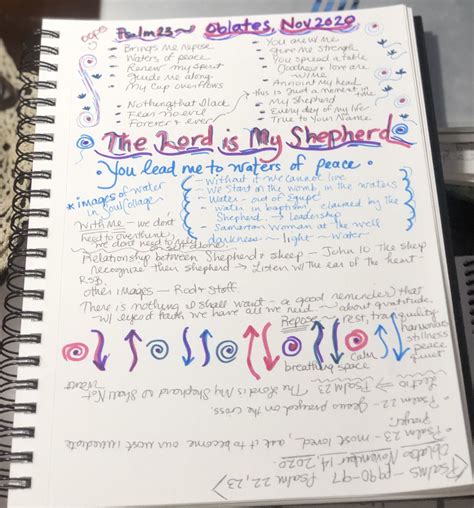 Psalm 23 ~ Oblates, Nov 2020
- Brings me repose
- Waters of peace
- Renew my spirit
- Guide me along
- My cup overflows
- Nothing that I lack
- Fear no evil
- Forever & ever
- You are w/ me
- Give me strength
- You spread a table
- Goodness + love are w/me
- Annoint my head
- this is Just a moment
My Shepherd
- Every day of my life
- True to Your Name
The Lord is My Shepherd
• You lead me to waters of peace •
* images of water in
- Without it we cannot live
- We start in the womb, in the waters
- Water - out of Egypt
- Water in baptism claimed by the
Shepherd -> Leadership
- Samaritan Woman at the well
darkness ~ light ~ Water
With Me - we dont
need to overthink,
we dont need to rely
on self alone.
Relationship between Shepherd & sheep - John 10 The sheep
recognize their shepherd -> Listen w/ the ears of the heart -
RSB.
other images - Rod & staff.
There is nothing I shall want - a good reminder that
w/ eyes of faith we have all we need ~ about gratitude.
Repose ~ rest, tranquility
harmonious
stillness
peace
quiet
calm
breathing space
Lectio => Psalm 23 => The Lord is My Shepherd I Shall Not
Want
• Psalm 22 - Jesus prayed on the cross.
• Psalm 23 - most loved, ask it to become our most immediate
prayer
Oblates November 14, 2020
Psalms - p 90-97 Psalm 22, 23